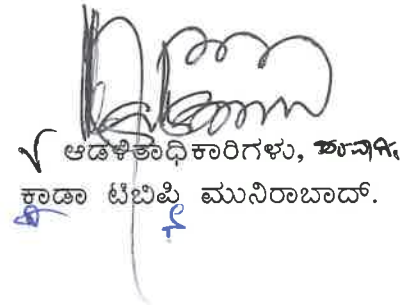 ಆಡಳಿತಾಧಿಕಾರಿಗಳು,
ಕಾಡಾ ಟಿಬಿಪಿ ಮುನಿರಾಬಾದ್.